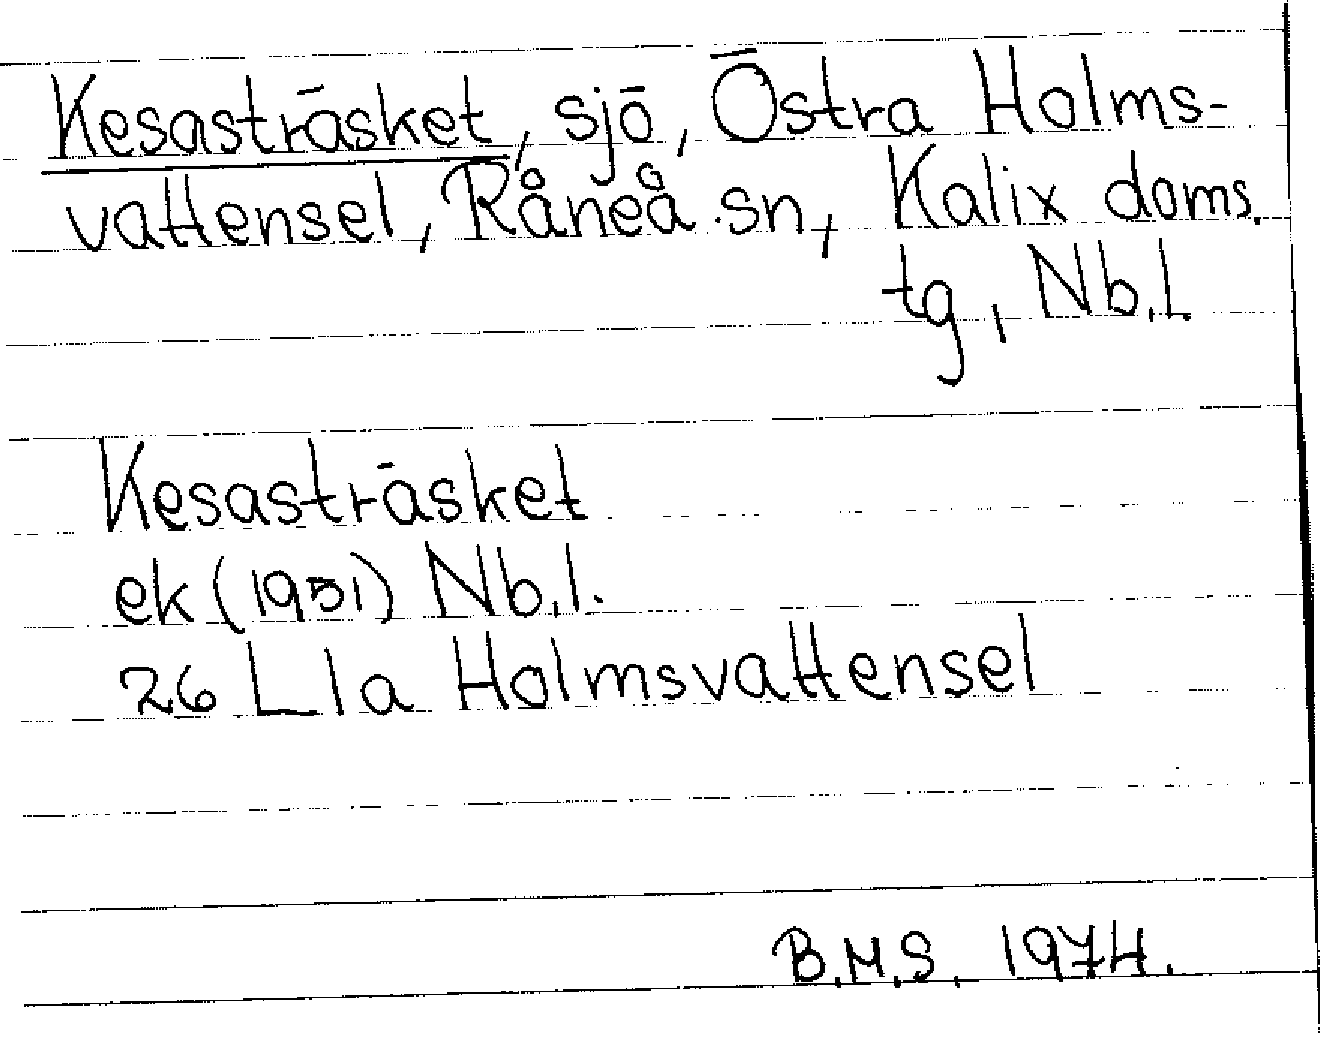 Kesasträsket, sjö, Östra Holms-
vattensel, Råneå sn, Kalix doms.
tg, Nb.l
Kesasträsket
ek (1951) Nb.l.
26 L 1a Holmsvattensel
B.M.S. 1974.